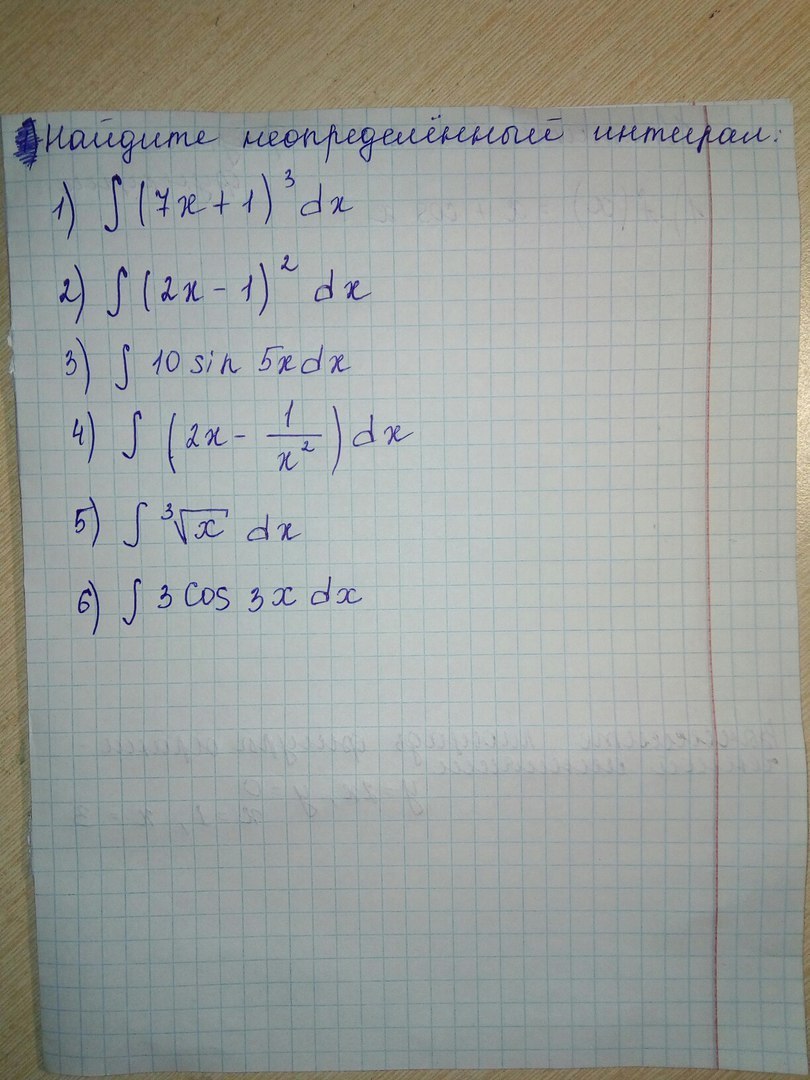 Найдите неопределённый интирал:
1) ∫ (7x + 1)³ dx
2) ∫ (2x - 1)² dx
3) ∫ 10 sin 5x dx
4) ∫ (2x - 1/x²) dx
5) ∫ ³√x dx
6) ∫ 3 cos 3x dx